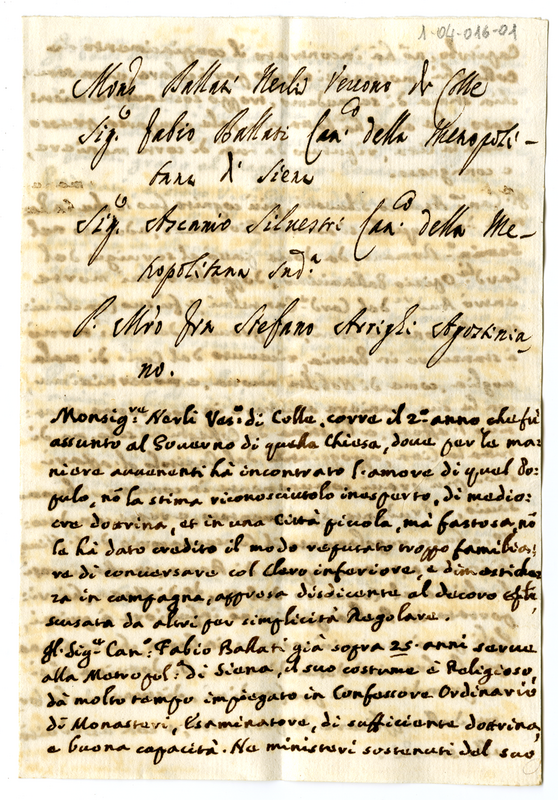 1-04-016-01
Mons.r Ballati Nerli Vescovo di Colle
Sig.r Fabio Ballati Can.co della Metropoli-
tana di Siena
Sig.r Ascanio Silvestri Can.co della Me-
tropolitana sud.a
P. Mro fra Stefano Arrighi Agostinia-
no.
Monsig.re Nerli Ves.o di Colle, corre il 2.o anno che fù
assunto al Governo di quella Chiesa, dove per le ma-
niere avvenenti hà incontrato l'amore di quel Po-
pulo, nõ la stima riconosciutolo inesperto, di medio-
cre dottrina, et in una Città picuola, mà fastosa, nõ
le hà dato credito il modo reputato troppo familia-
re di conversare col Clero inferiore, e dimestiche-
za in campagna, appresa disdicente al decoro
scusata da altri per simplicità Regolare.
Il Sig.re Can.o Fabio Ballati già sopra 25 anni serve
alla Metropol.a di Siena, il suo costume è Religioso,
dà molto tempo impiegato in Confessore Ordinario
di Monasteri, Esaminatore, di sufficiente dottrina,
e buona capacità. Ne ministeri sostenuti del suo